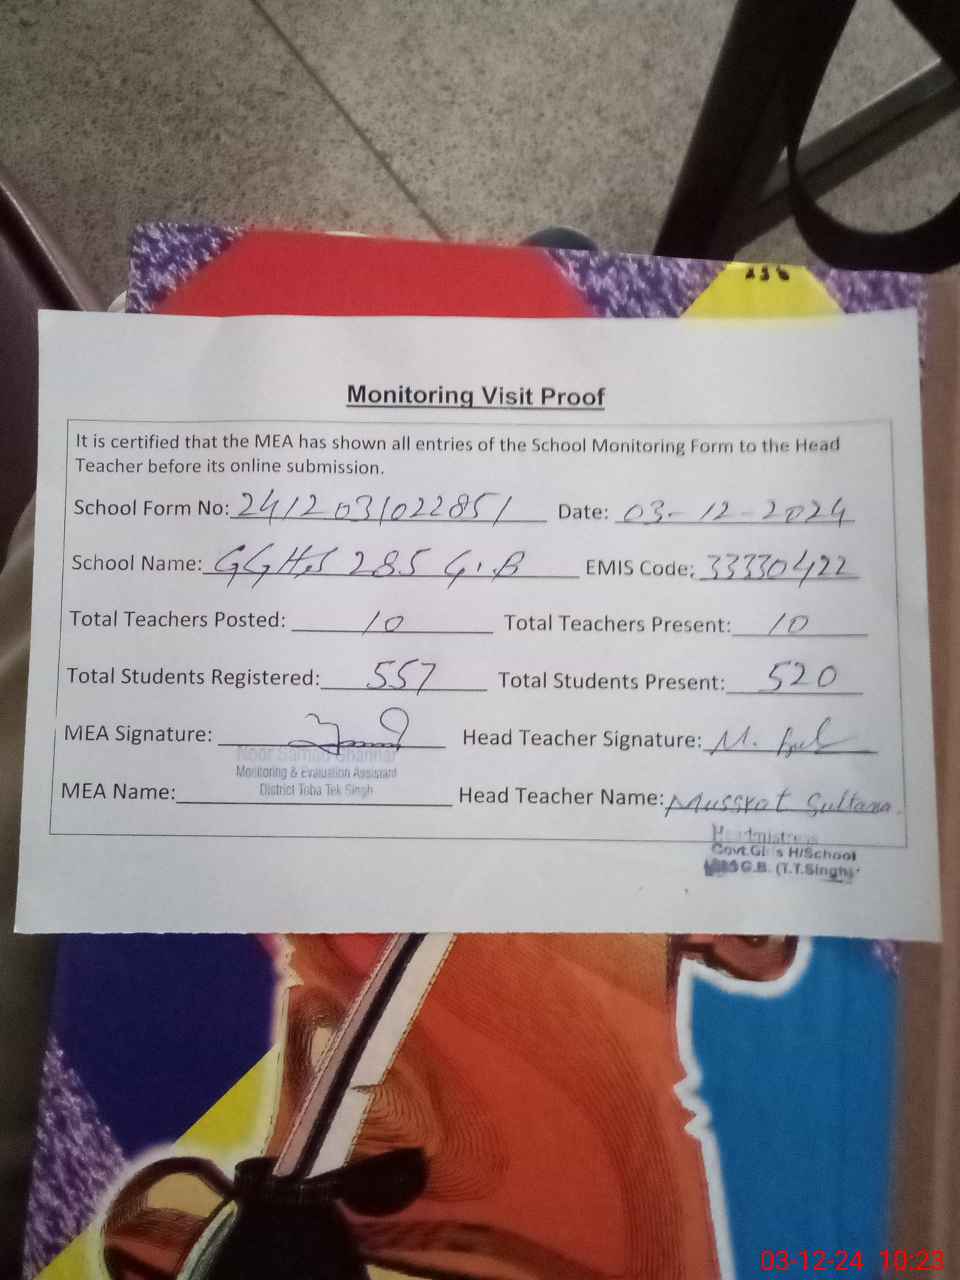 Monitoring Visit Proof
It is certified that the MEA has shown all entries of the School Monitoring Form to the Head
Teacher before its online submission.
School Form No: 2412031022851 Date: 03-12-2024
School Name: GGHS 285 G.B EMIS Code: 33330422
Total Teachers Posted: 10 Total Teachers Present: 10
Total Students Registered: 557 Total Students Present: 520
MEA Signature: Head Teacher Signature: M.
Noor
Monitoring & Evaluation Assistant
District Toba Tek Singh
MEA Name: Head Teacher Name: Mussrat Sultana.
Headmistress
Govt.Girls H/School
G.B. (T.T.Singh)
03-12-24 10:23